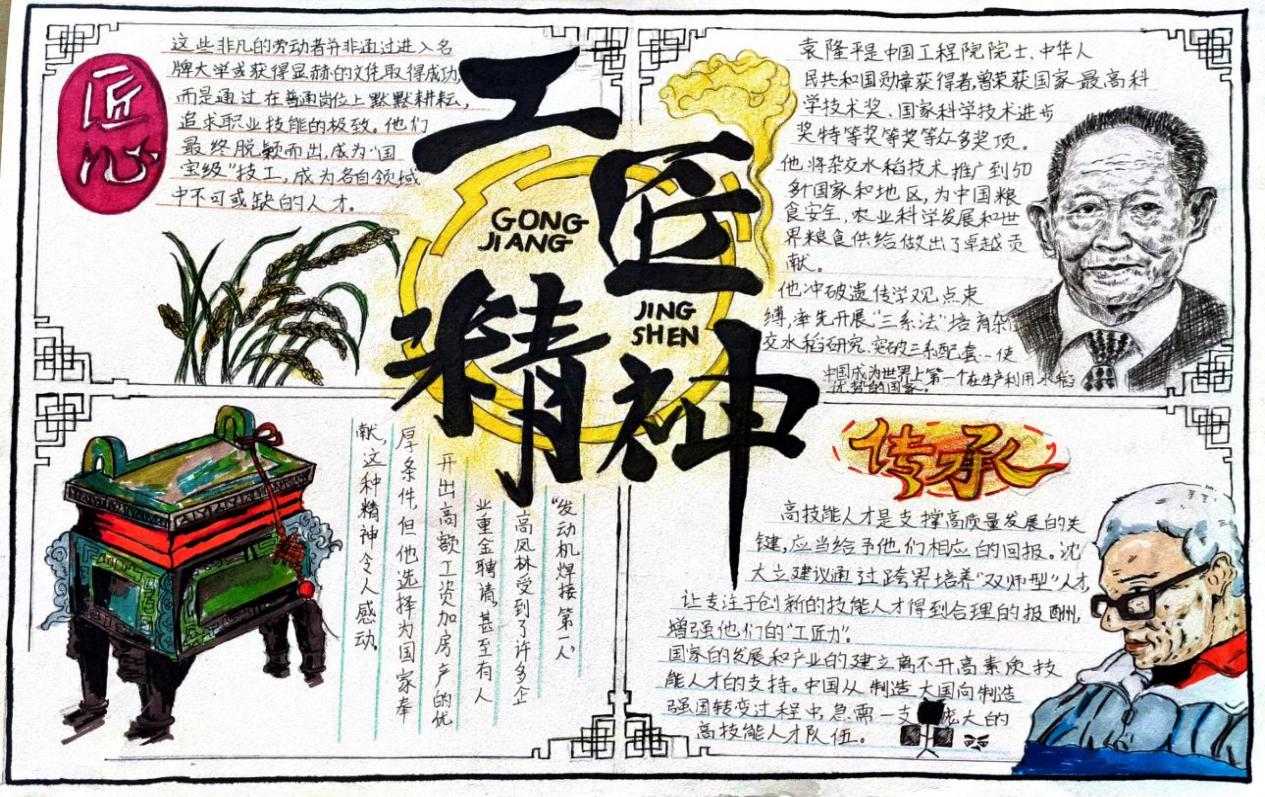 匠心
这些非凡的劳动者并非通过进入名
牌大学或获得显赫的文凭取得成功,
而是通过在普通岗位上默默耕耘,
追求职业技能的极致。他们
最终脱颖而出,成为“国
宝级”技工,成为各自领域
中不可或缺的人才。
工匠
精神
GONG
JIANG
JING
SHEN
袁隆平是中国工程院院士、中华人
民共和国勋章获得者,曾荣获国家最高科
学技术奖、国家科学技术进步
奖特等奖等奖等众多奖项。
他将杂交水稻技术推广到50
多个国家和地区,为中国粮
食安全、农业科学发展和世
界粮食供给做出了卓越贡
献。
他冲破遗传学观点束
缚,率先开展“三系法”培育杂
交水稻研究.突破三系配套…使
中国成为世界上第一个在生产利用水稻
优势的国家.
“发动机焊接第一人”
高凤林受到了许多企
业重金聘请,甚至有人
开出高额工资加房产的优
厚条件,但他选择为国家奉
献,这种精神令人感动。
传承
高技能人才是支撑高质量发展的关
键,应当给予他们相应的回报。沈
大立建议通过跨界培养“双师型”人才,
让专注于创新的技能人才得到合理的报酬,
增强他们的“工匠力”。
国家的发展和产业的建立离不开高素质技
能人才的支持。中国从制造大国向制造
强国转变过程中,急需一支庞大的
高技能人才队伍。